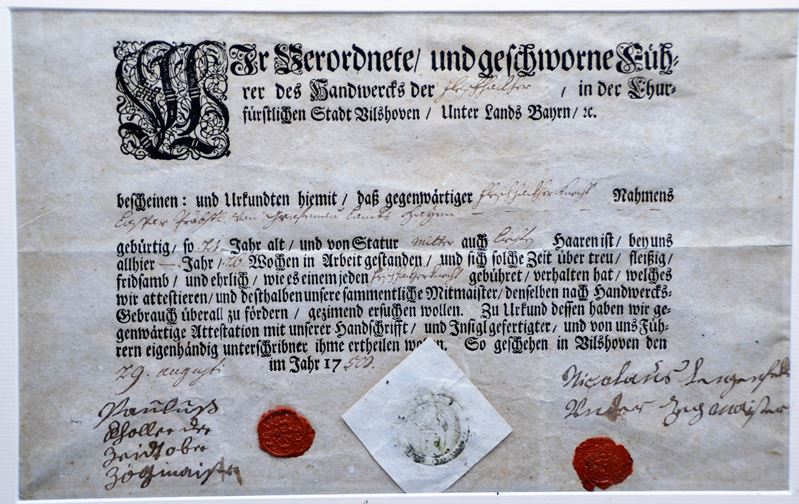 WIr Verordnete / und geschworne Füh-
rer des Handwercks der / in der Chur-
fürstlichen Stadt Vilshoven / Unter Lands Bayrn / ꝛc.
bescheinen: und Urkundten hiemit / daß gegenwärtiger Nahmens
gebürtig / so 21 Jahr alt / und von Statur mitter auch Haaren ist / bey uns
allhier — Jahr / 26 Wochen in Arbeit gestanden / und sich solche Zeit über treu / fleißig /
fridsamb / und ehrlich / wie es einem jeden gebühret / verhalten hat / welches
wir attestieren / und desthalben unsere sammentliche Mitmaister / denselben nach Handwercks-
Gebrauch überall zu fördern / gezimend ersuchen wollen. Zu Urkund dessen haben wir ge-
genwärtige Attestation mit unserer Handschrifft / und Insigl gefertigter / und von uns Füh-
rern eigenhändig unterschribner ihme ertheilen So geschehen in Vilshoven den
29. augusti im Jahr 17
Paulluß
der
Zeidt ober
Zöchmaister
Nicolaus
Under Zegmaister